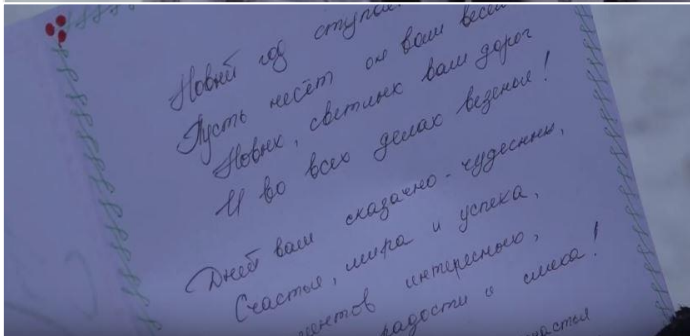 Новый год ступа
Пусть несёт он вам весел
Новых, светлых вам дорог
И во всех делах везенья!
Дней вам сказочно-чудесных,
Счастья, мира и успеха,
ментов интересных,
радости и смеха!
частья